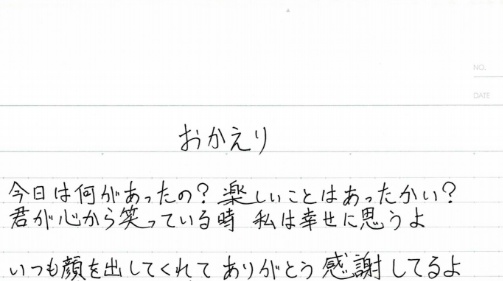 NO.
DATE
おかえり
今日は何があったの？楽しいことはあったかい？
君が心から笑っている時 私は幸せに思うよ
いつも顔を出してくれて ありがとう 感謝してるよ